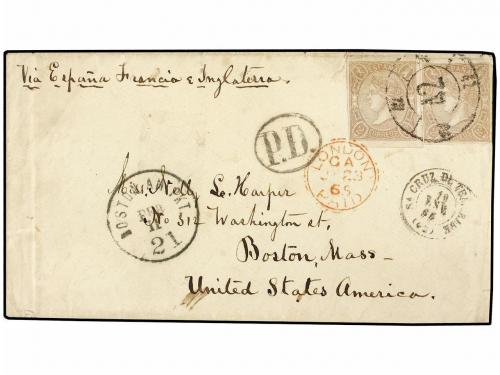 Via España Francia e Inglaterra.
42
P.D.
LONDON
CA
23
65
PAID
Sta CRUZ DE
18
ENE
65
BOSTON
FEB
11
21
Nell L. Harper
No 312 Washington st,
Boston, Mass-
United States America.